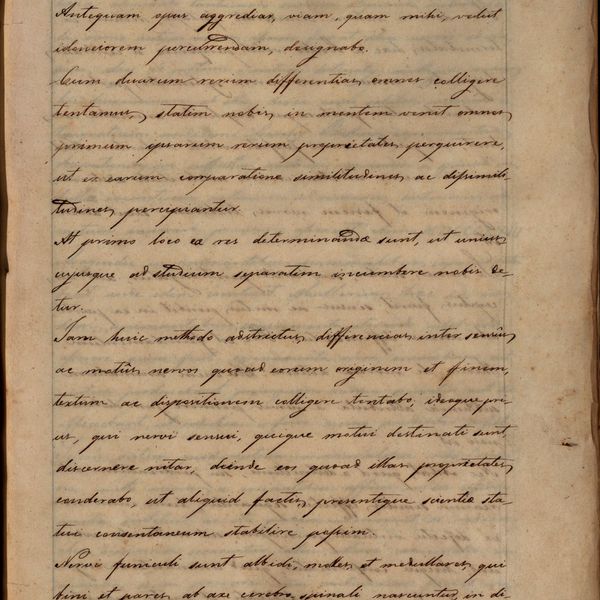 Antequam opus aggrediar, viam, quam mihi, velut
idoneiorem percurrendam, designabo.
Cum duarum rerum differentias omnes colligere
tentamus, statim nobis in mentem venit omnes
primum ipsarum rerum proprietates perquirere,
ut ex earum comparatione similitudines ac dissimili-
tudines percipiantur.
At primo loco ea res determinandæ sunt, ut unius
cujusque ad studium separatim incumbere nobis de-
tur.
Jam huic methodo adstrictus, differencias inter sensûs
ac motûs nervos quoad eorum originem et finem,
textum ac dispositionem colligere tentabo, ideoque pri-
us, qui nervi sensui, quique motui destinati sunt,
discernere nitar, deinde eos quoad illas proprietates
considerabo, ut aliquid factis, presentique scientiæ sta-
tui consentaneum stabilire possim.
Nervi funiculi sunt albidi, molles et medullares, qui
bini et pares ab axi cerebro spinali nascuntur, in de-